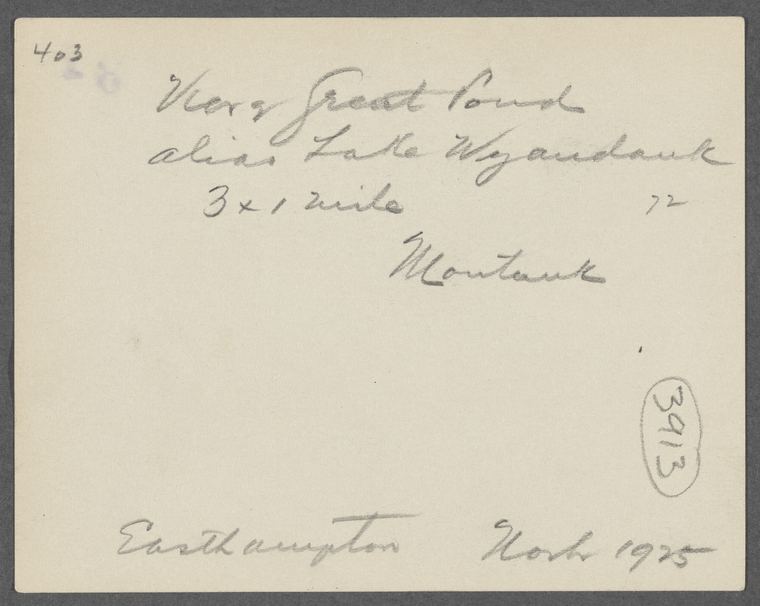 403
View Great Pond
alias Lake Wyandank
3 x 1 mile 72
Montauk
3913
Easthampton Novbr 1925